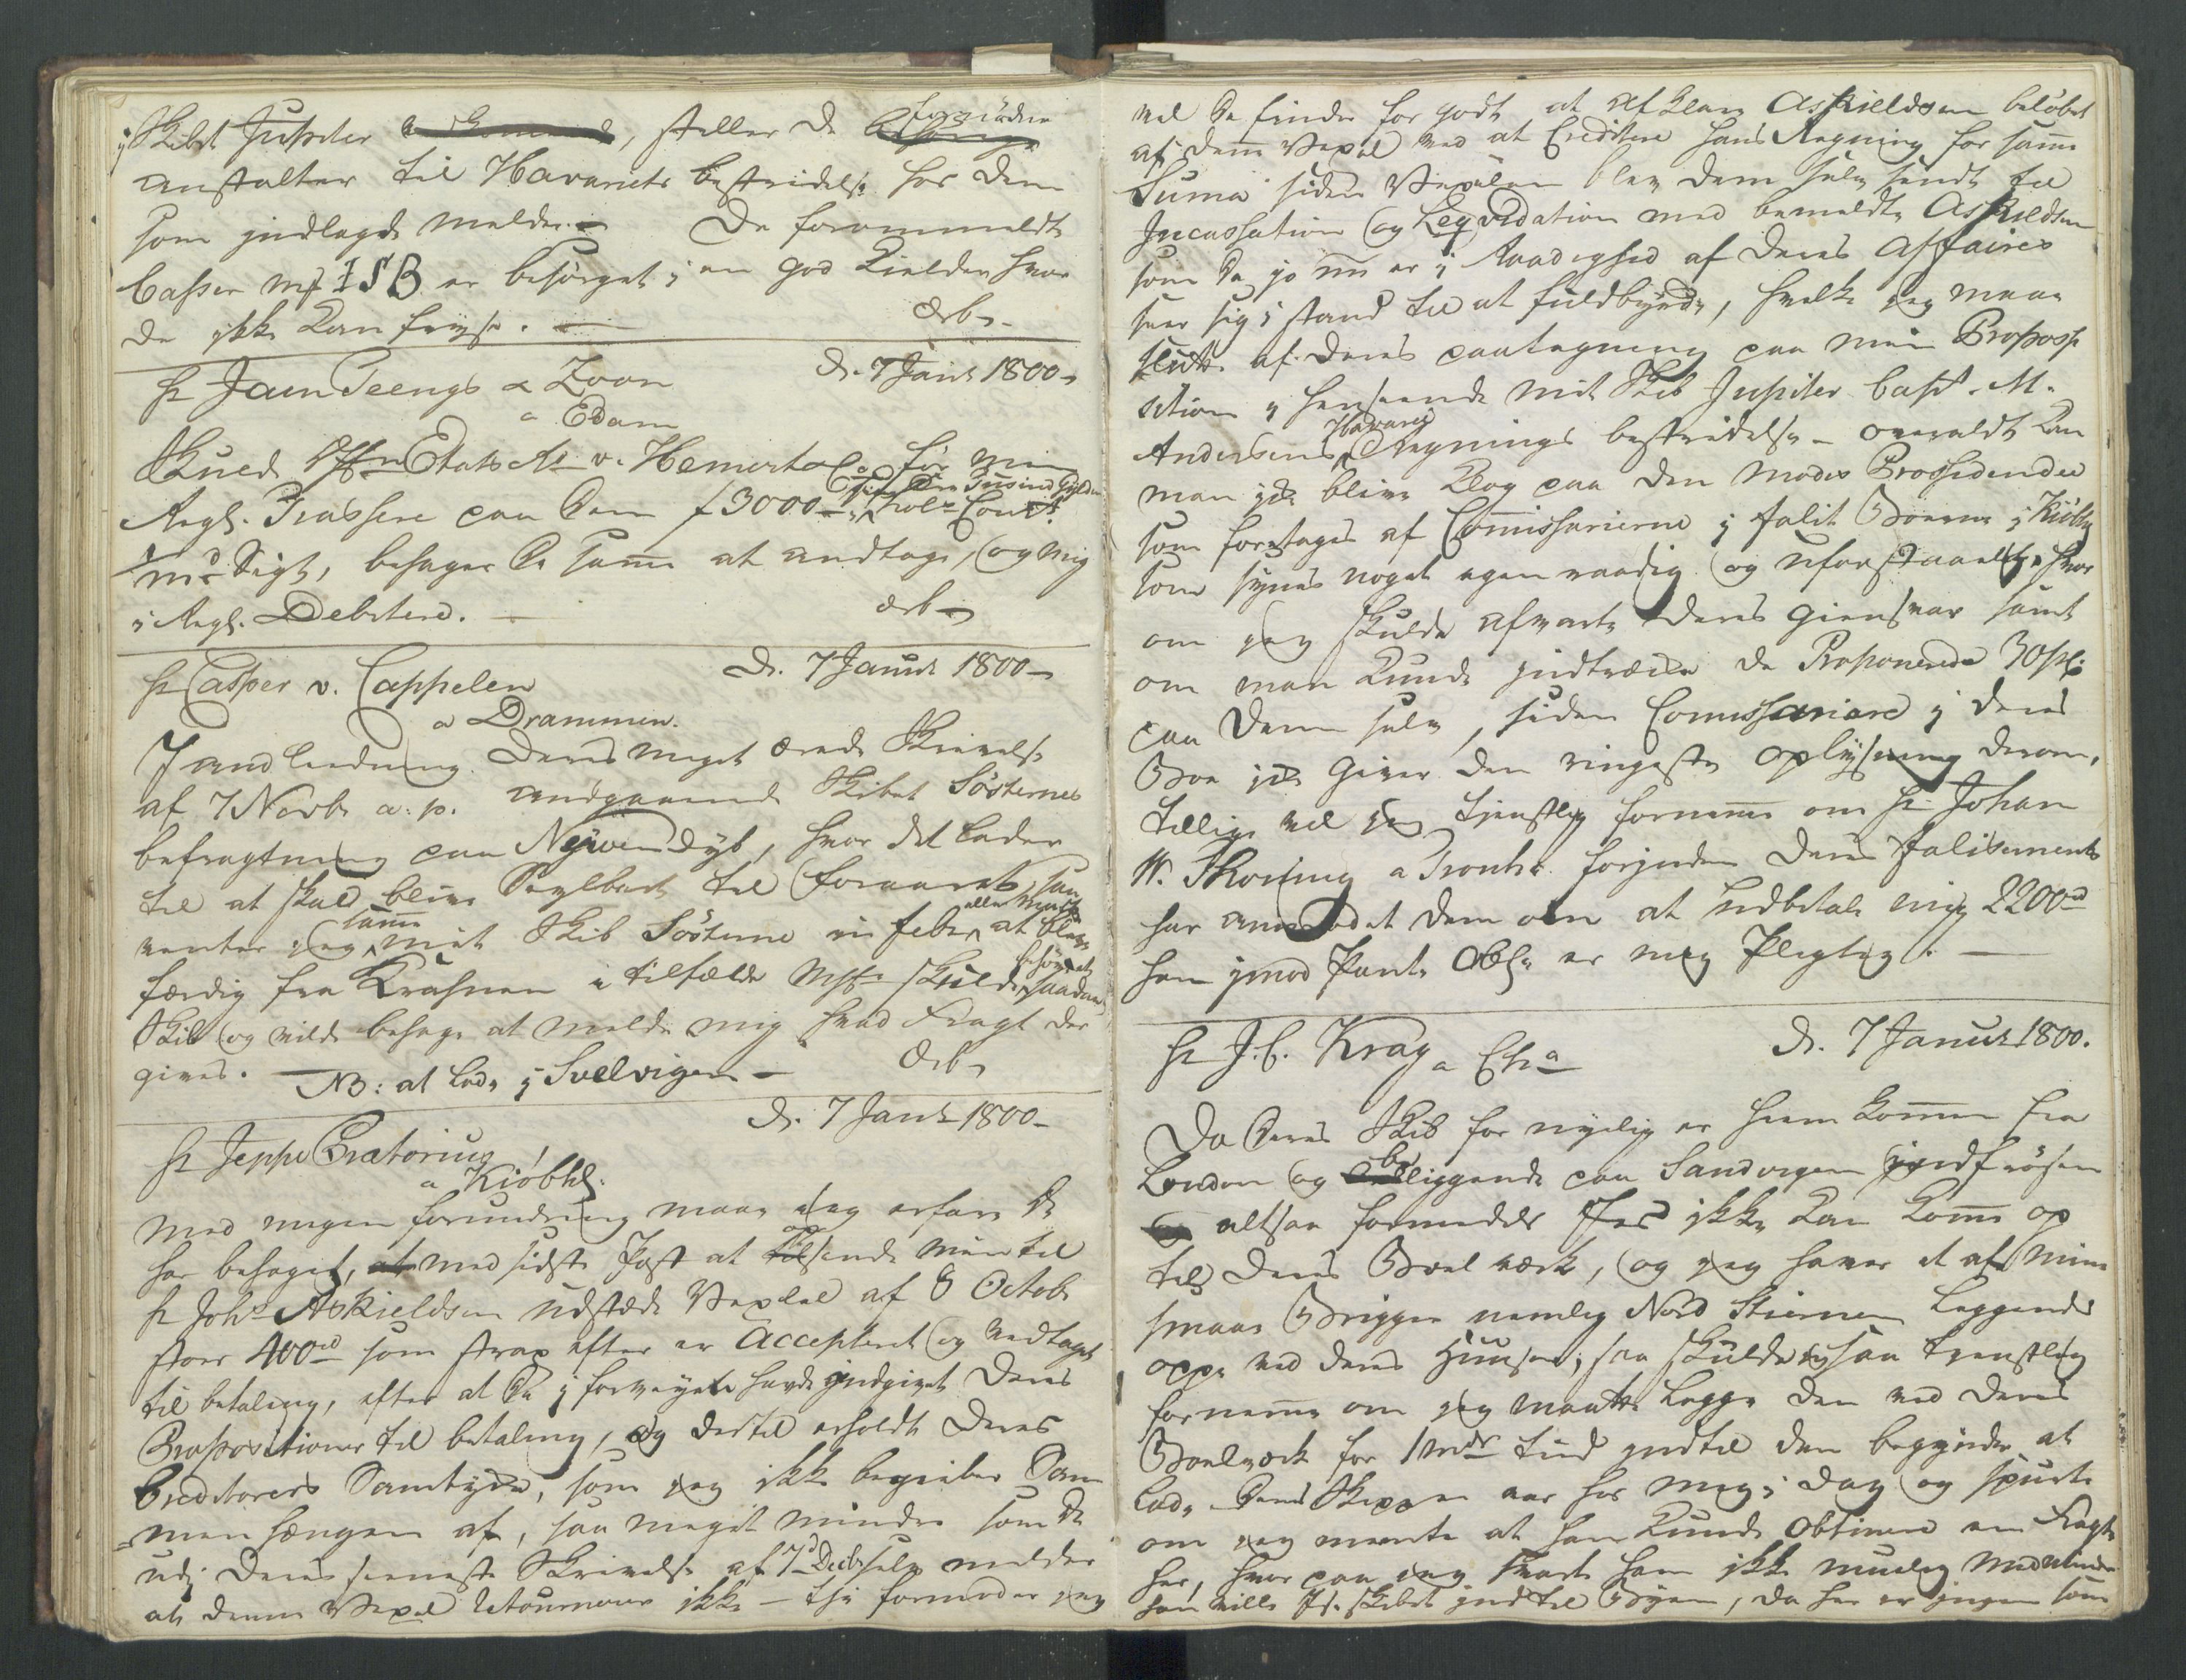 i Skibet Jupiter, stiller De fornödne
anstalter til Havariets bestridelse hos dem
som indlagde melder. — De forommeldte
Casser mkt ISB er besörget i en god Kielder hvor
de ikke kan fryse. — Erb.
Hr Jaen Teengs & Zoon d. 7 Janr 1800
a Edam
Etats Rd v. Hemert for min
Regn. Trassere paa Dem f 3000 — skr. Tre Tusind Gylden Holl. Cour.
1 md Sigt, behager De samme at andtage, og mig
i Regn. Debitere. — Erb
Hr Casper v. Cappelen d. 7 Januar 1800
a Drammen.
I andledning Deres meget ærede Skrivelse
af 7 Novbr a. p. andgaaende Skibet Söstrenes
befragtning paa Nywendyb, hvor det lader
til at skulde blive Seylbart til foraaret, saa
venter jeg samme mit Skib Söstrene in Febr. eller Marts at blive
færdig fra Krahnen i tilfælde skulde behöve et saadant
Skib og vilde behage at melde mig hvad Fragt der
gives. — NB: at lade i Svelvigen — Erb
d. 7 Janr 1800
Hr Jeppe Prætorius
a Kiöbh.
Med megen forundring maae jeg erfare De
har behaget, med sidste Post at opsende min til
Hr Johs Askieldsen udstædte Vexel af 8 Octobr
stor 400rd som strax efter er Accepteret og vedtaget
til betaling, efter at De i forveyen havde indgivet Deres
Propositioner til betaling, og dertil erholdt Deres
Creditorers Samtykke, som jeg ikke begriber Sam
menhængen af, saa meget mindre som De
udi Deres seeneste Skrivelse af 7d Decbr selv melder
at denne Vexel retournerer ikke — thi formoder jeg
vel De finder for godt at af Askieldsen belöbet
af denne Vexel ved at Creditere hans Regning for samme
Suma siden Vexelen blev Dem selv sendt til
Incassation og Leqvidation med bemeldte Askieldsen
som De jo nu er i Raadighed af Deres Affaires
seer sig i stand til at fuldbyrde, hvilket jeg maae
slutte af Deres paategning paa min Proposi
sition i henseende mit Skib Jupiter Capt. M.
Andersens Havarie Regnings bestridelse — overalt kan
man ikke blive klog paa den modes Prossedender
som foretages af Commissarierne i falit Boerne i Kiöbh
som synes noget egenraadig og uforstaaelig. hvor
om jeg skulde afvarte Deres giensvar samt
om man kunde indtræcke de Proponerede 30 pC.
paa Dem selv, siden Comissariere i Deres
Boe ikke giver den ringeste oplysning derom,
tillige vil jeg tienstlig fornemme om Hr Johan
W. Thoning a Tronh. forinden Deres falisements
har anmodet dem om at udbetale mig 2200rd
han imod Pante Obl. er mig pligtig. —
Hr J. C. Krag a Cha d. 7 Januar 1800.
Da Deres Skib for nylig er hiemkommen fra
London og beliggende paa Sandvigen indfrösen
altsaa formedelst Iis ikke kan komme op
til Deres Boelværk, og jeg haver et af mine
smaae Brigger nemlig Nord Stiernen liggende
oppe ved Deres Huuse; saa skulde jeg saa tienstlig
fornemme om jeg maatte legge den ved Deres
Boelværk for 1 mdr tiid indtil den begynder at
lade. Deres Skipper var hos mig i Dag og spurte
om jeg meente at han kunde obtinere en Fragt
her, hvor paa jeg svarte ham ikke muelig med mindre
han ville Ise Skibet ind til Byen, da her er ingen som